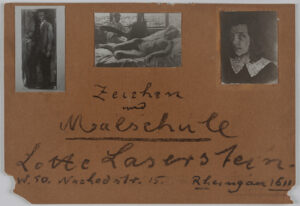 Zeichen
und
Malschule
Lotte Laserstein.
W. 50. Nachodstr. 15. Rheingau 1611